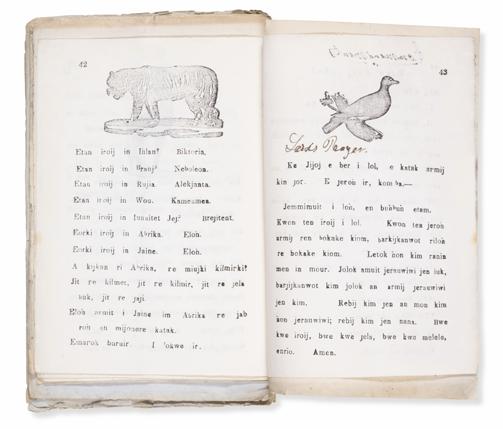 42
Etan iroij in Iñlan? Biktoria,
Etan iroij in Branj? Neboleoa.
Etan iroij in Rujia. Alekjanta.
Etan iroij in Wou. Kameamea.
Etan iroij in Iunaitet Jej? Brejitent.
Eorki iroij in Abrika. Eloñ.
Eorki iroij in Jaine. Eloñ.
A kijkan ri Abrika, re miujki kilmirki?
Jit re kilmer, jit re kilmir, jit re jela
buk, jit re jaji.
Eloñ armit i Jaine im Abrika re jab
roñ en mijonere katak.
Emaroñ baruir. I 'okwe ir.
43
Lords Prayer.
Ke Jijoj e ber i lol, e katak armij
kin jor. E jeroñ ir, komba.—
Jemmimuit i loñ, en buñbuñ etam.
Kwon ten iroij i lol. Kwon ten jeroñ
armij ren bokake kiom, barkijkanwot riloñ
re bokake kiom. Letok ñon kim ranin
men in mour. Jolok amuit jerauwiwi jen buk,
barjijkanwot kim jolok an armij jerauwiwi
jen kim. Rebij kim jen an mon kim
ñon jerauwiwi; rebij kim jen nana. Bwe
kwe iroij, bwe kwe jela, bwe kwe melele,
enrio. Amen.